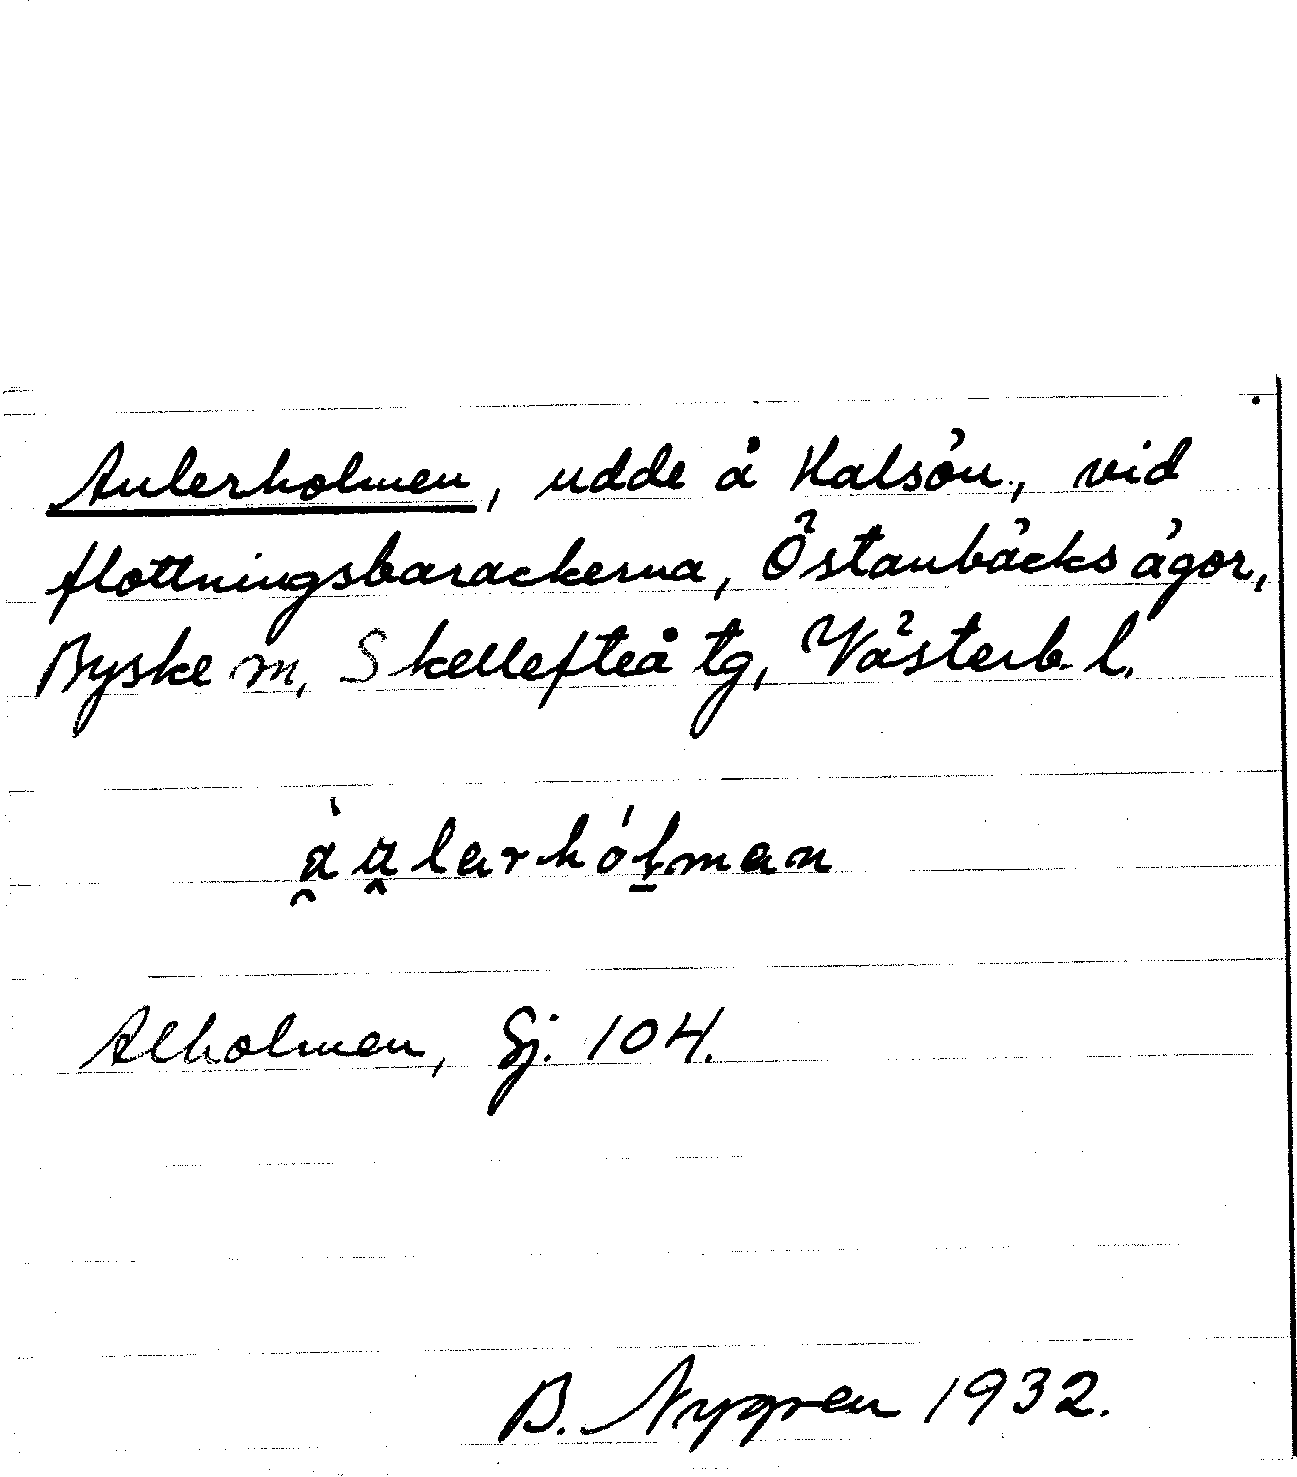 Aulerholmen, udde å Halsön, vid
flottningsbarackerna, Östanbäcks ägor,
Byske sn, Skellefteå tg, Västerb. l.
àu̯larhól̠man
Alholmen, Gj. 104.
B. Nygren 1932.